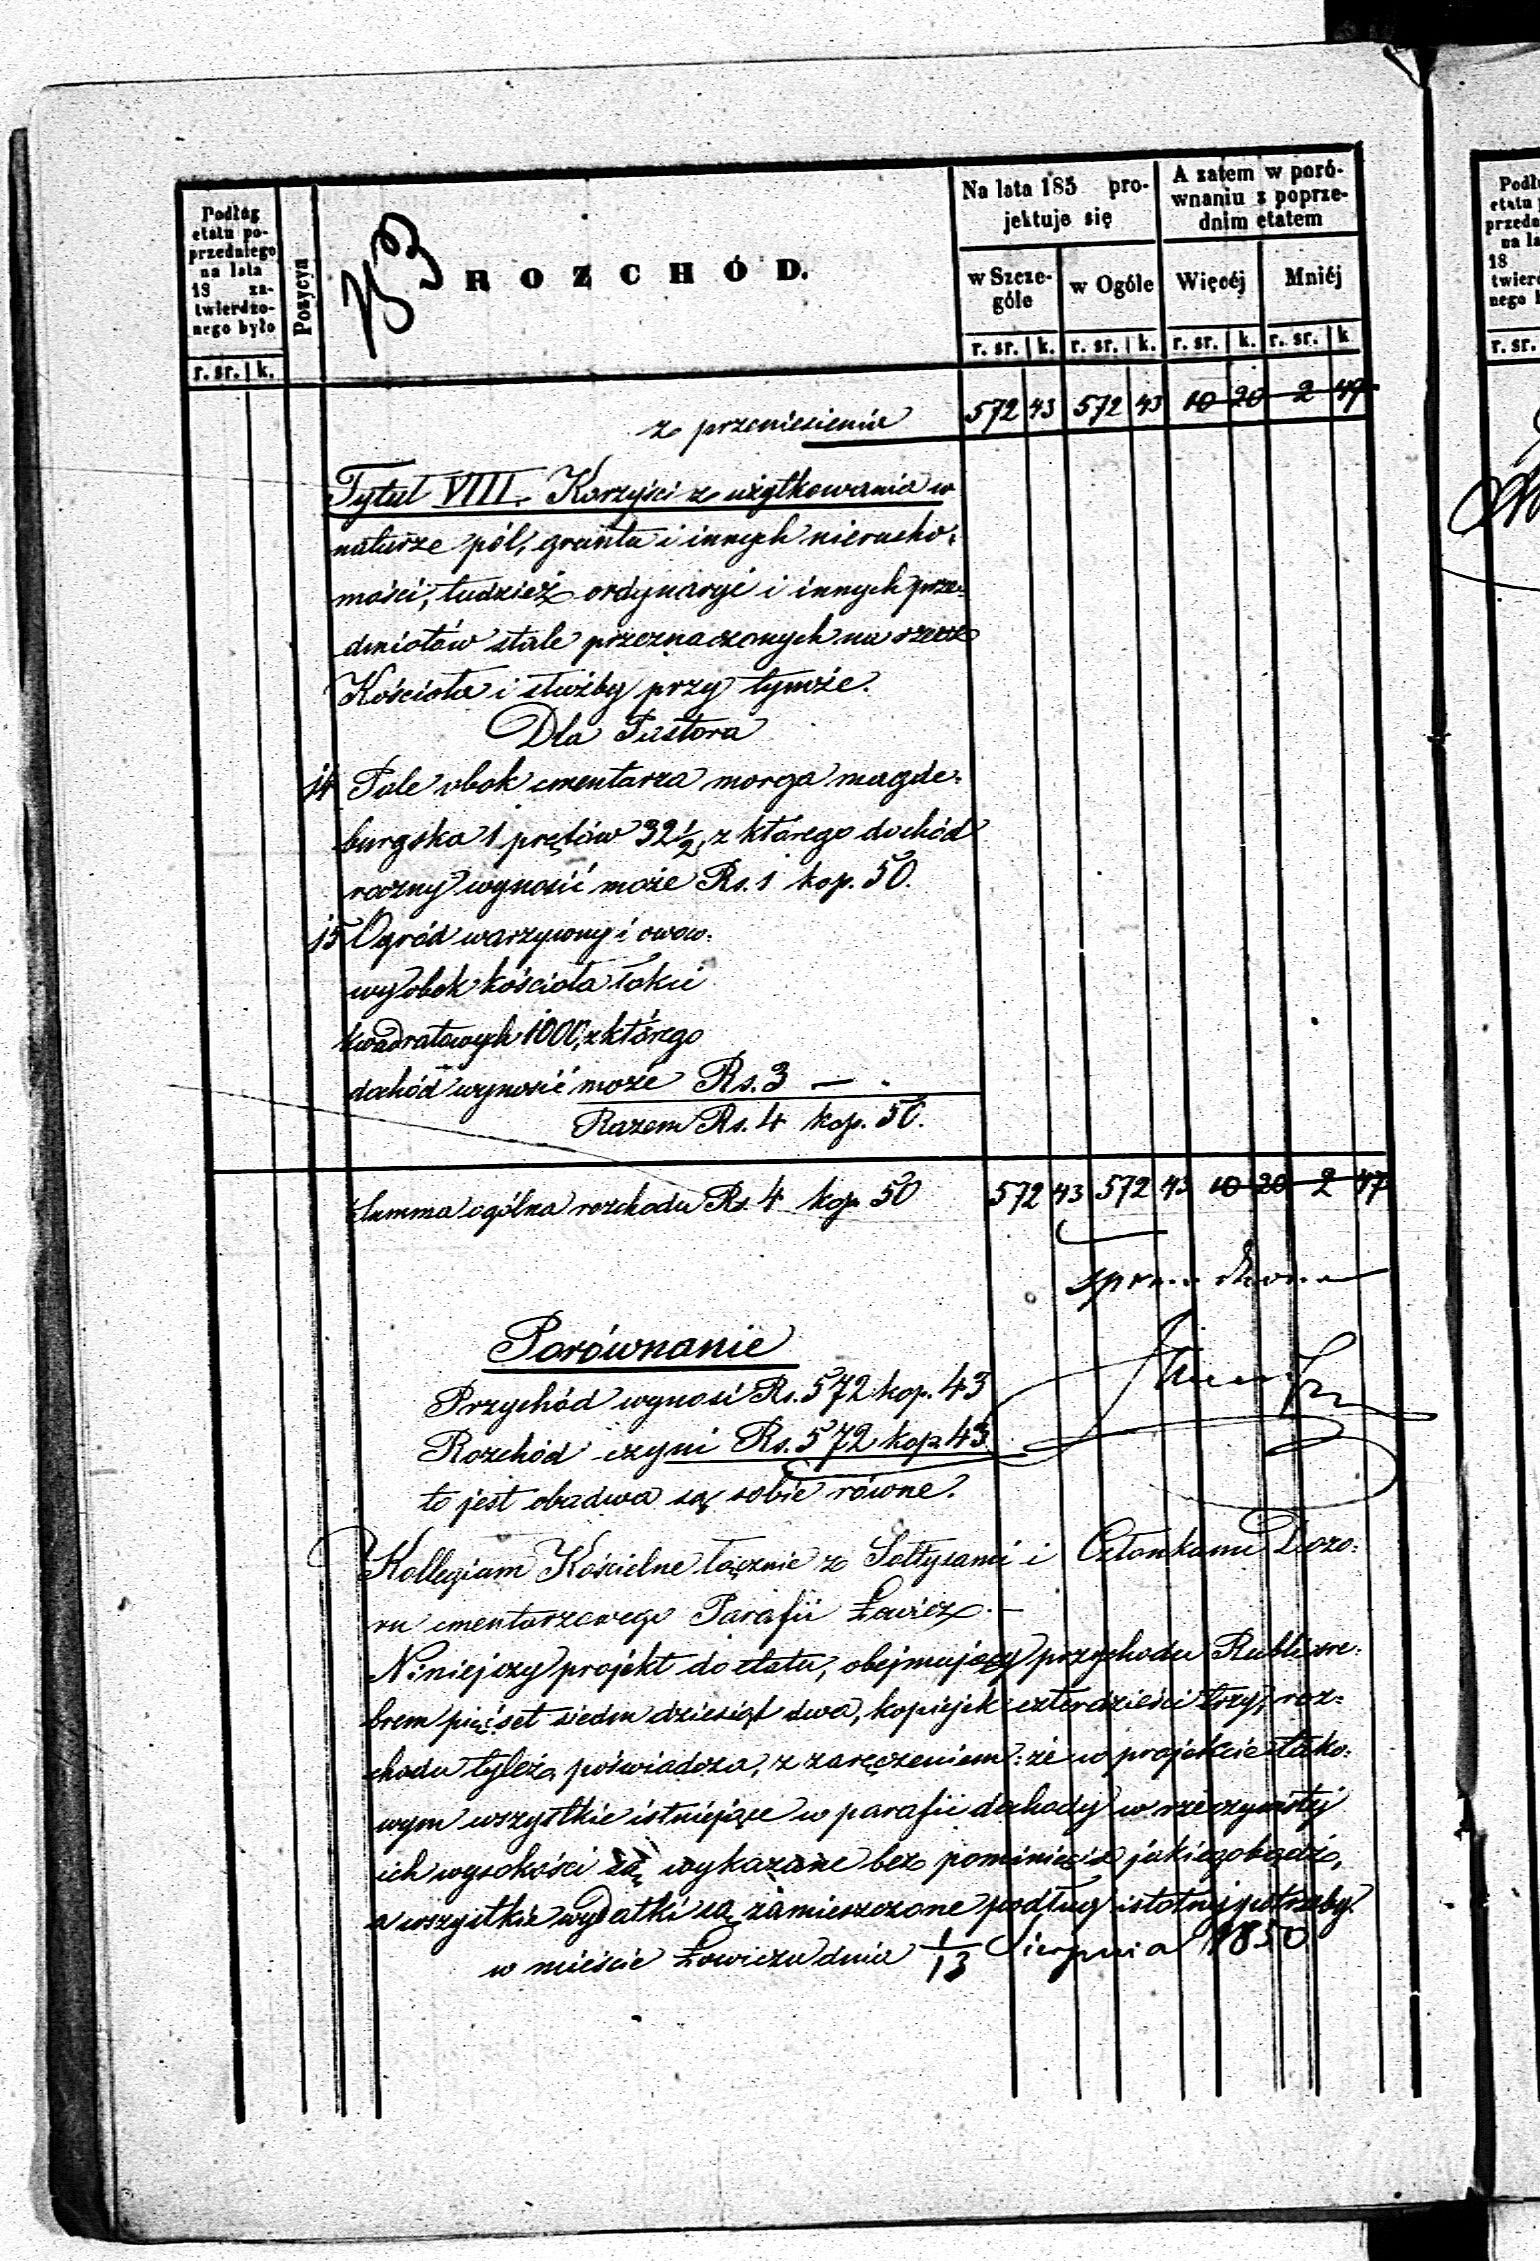 Podług
etatu po-
przedniego
na lata
18 za-
twierdzo-
nego było
r. sr. k.
Pozycya
ROZCHÓD.
Na lata 185 pro-
jektuje się
w Szcze-
góle
w Ogóle
r. sr. k. r. sr. k.
A zatem w poró-
wnaniu z poprze-
dnim etatem
Więcéj
Mniéj
r. sr. k. r. sr. k
z przeniesienia 572 43 572 43 10 20 2 47
Tytuł VIII. Korzyści z użytkowania w
naturze pól, gruntu i innych nierucho-
mości, tudzież ordynaryi i innych prze-
dmiotów stale przeznaczonych na rzecz
Kościoła i służby przy tymże.
Dla Pastora
14 Pole obok cmentarza morga magde-
burgska 1 prętów 32½, z którego dochód
roczny wynosić może Rs. 1 kop. 50.
15 Ogród warzywny i owoco-
wy obok kościoła łokci
kwadratowych 1000, z którego
dochód wynosić może Rs. 3 — .
Razem Rs. 4 kop. 50.
Summa ogólna rozchodu Rs. 4 kop 50 572 43 572 43 10 20 2 47
Porównanie
Przychód wynosi Rs. 572 kop. 43
Rozchód czyni Rs. 572 kop. 43
to jest obadwa są sobie równe.
Kollegium Kościelne łącznie z Sołtysami i Członkami Dozo-
ru cmentarzowego Parafii Łowicz. —
Niniejszy projekt do etatu, obejmujący przychodu Rubli sre-
brem pięćset siedmdziesiąt dwa, kopiejek czterdzieści trzy, roz-
chodu tyleż, poświadcza, z zaręczeniem: że w projekcie tako-
wym wszystkie istniejące w parafii dochody w rzeczywistéj
ich wysokości są wykazane bez pominięcia jakiegobądź,
a wszystkie wydatki są zamieszczone podług istotnéj potrzeby.
w mieście Łowiczu dnia 1/13 Sierpnia 1850
Podł
etatu
przedn
na la
18
twier
nego
r. sr.